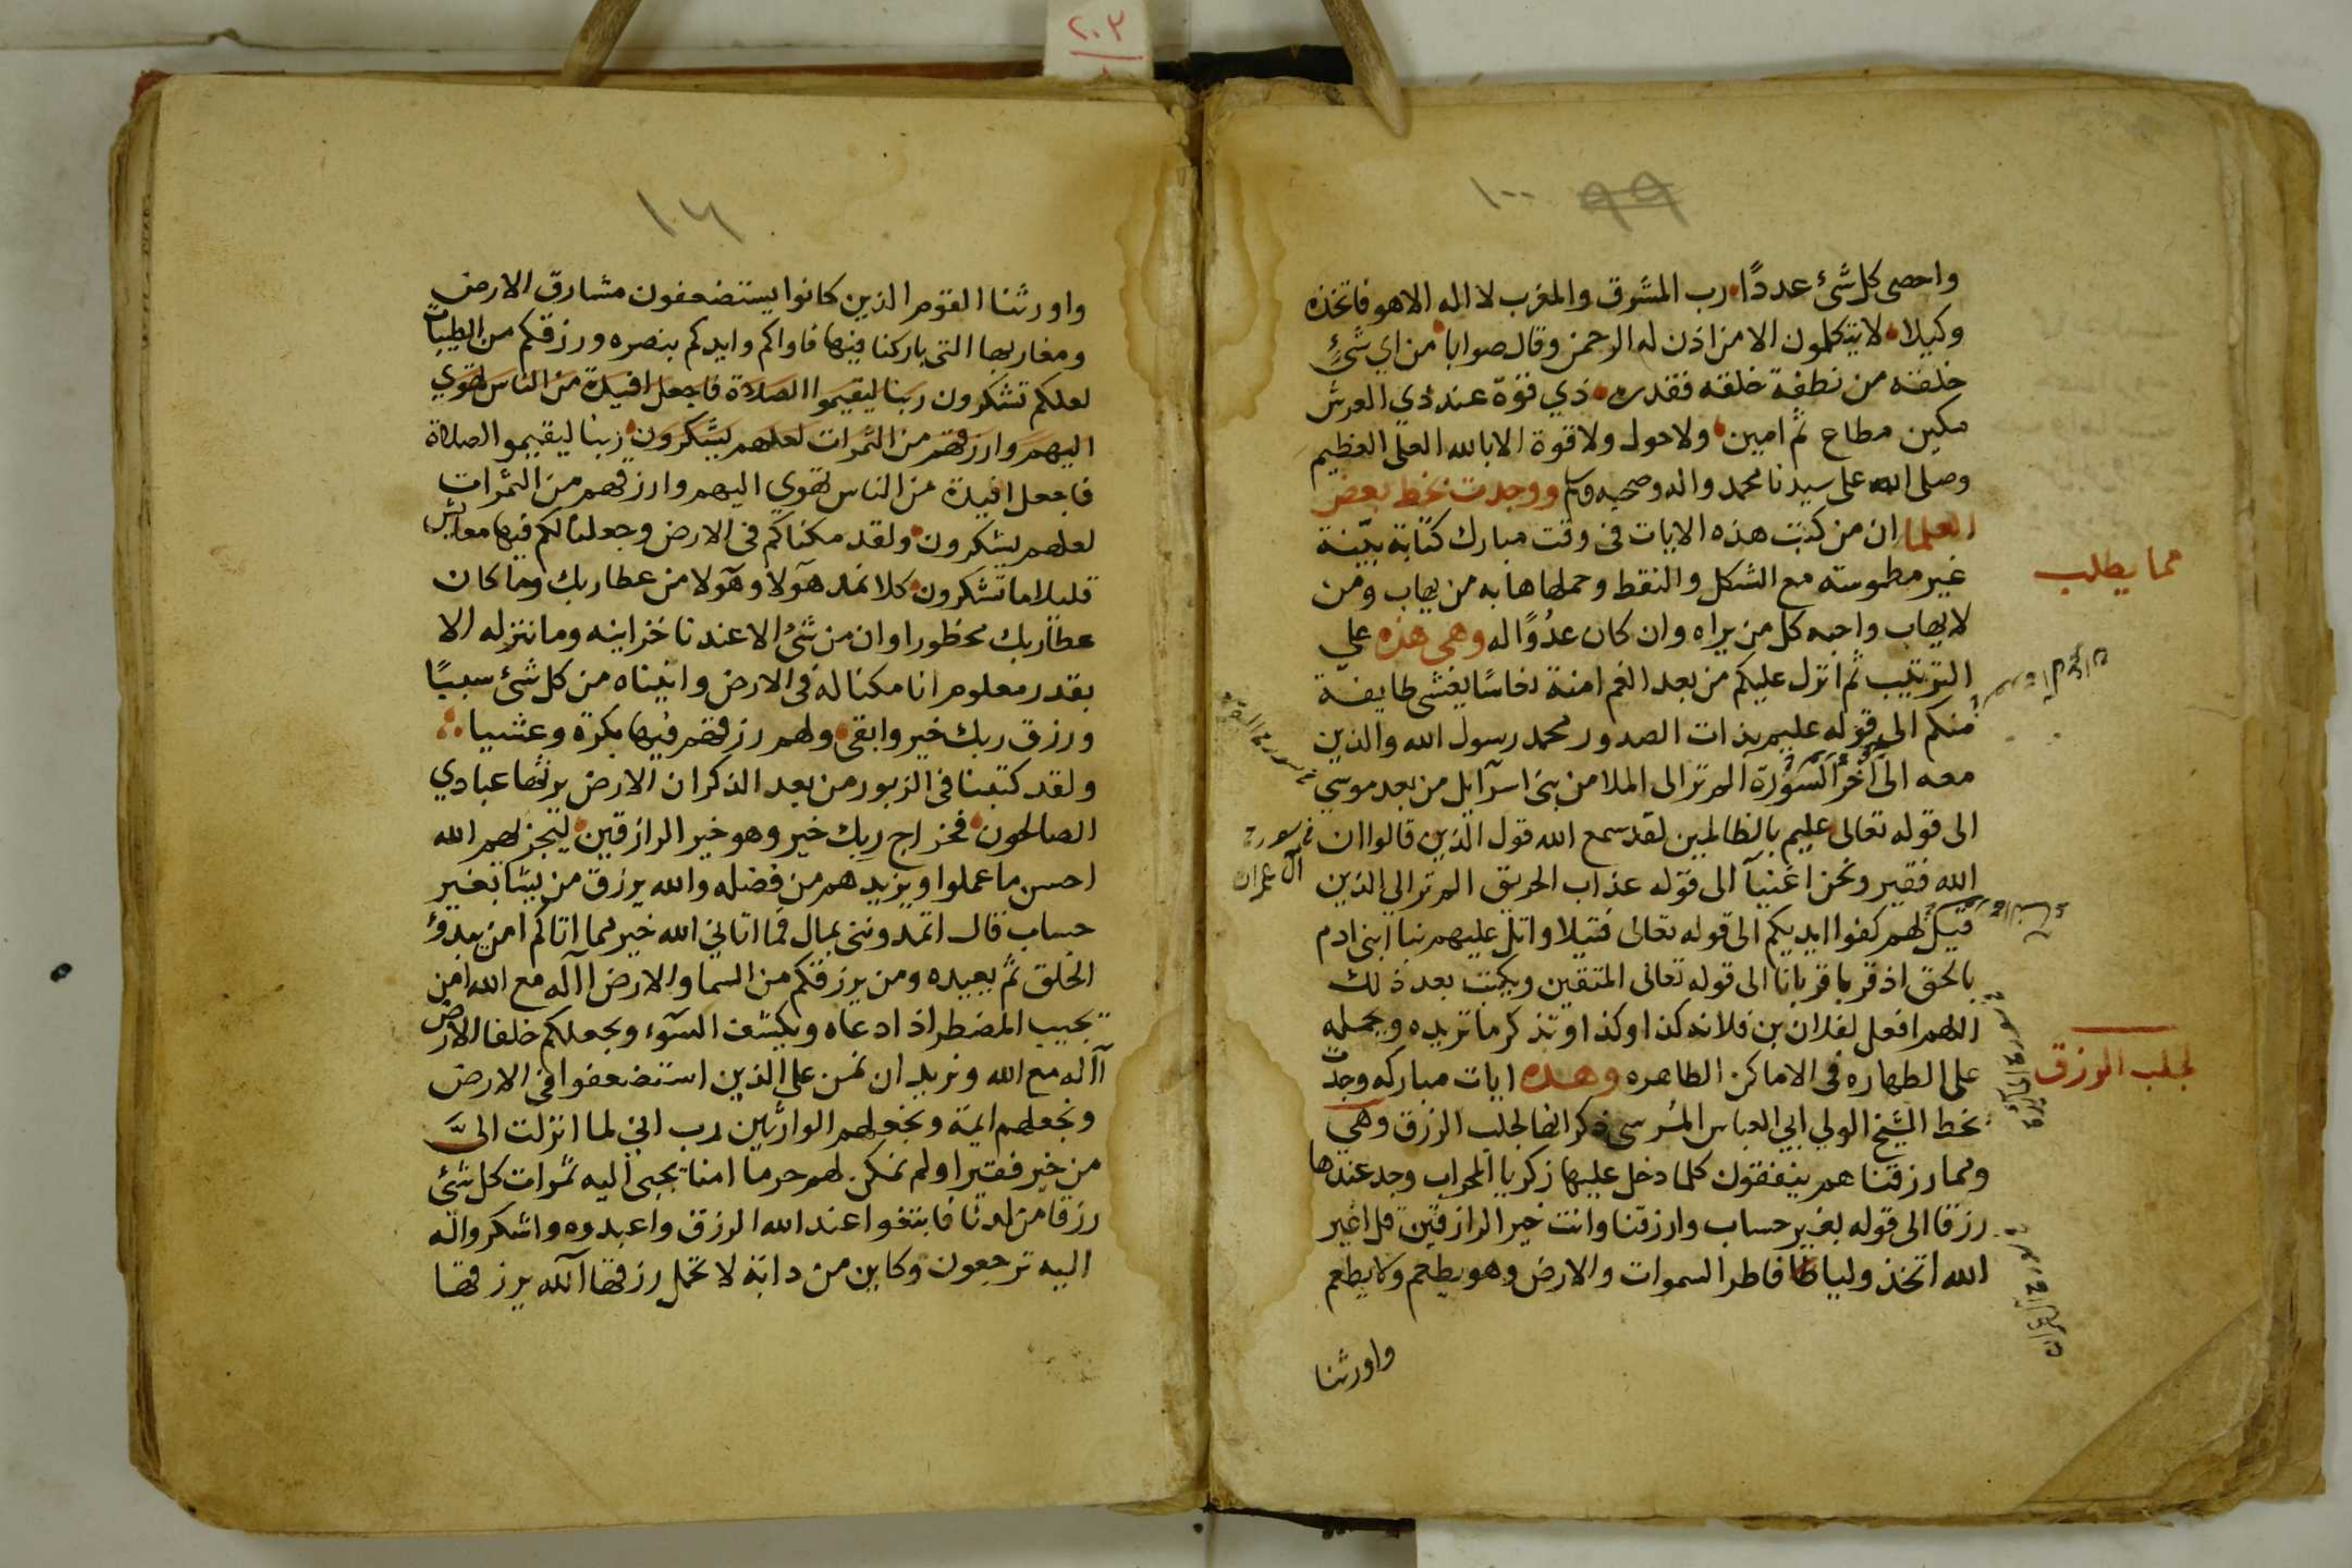 ٢٠٣
١٠٠ ٩٩
واحصى كل شئ عددًا رب المشرق والمغرب لا اله الا هو فاتخذه
وكيلا لا يتكلمون الا من اذن له الرحمن وقال صوابا من اي شئ
خلقه من نطفة خلقه فقدره ذي قوة عند ذي العرش
مكين مطاع ثم امين ولا حول ولا قوة الا بالله العلى العظيم
وصلى الله على سيدنا محمد واله وصحبه وسلم ووجدت بخط بعض
العلما ان من كتب هذه الايات فى وقت مبارك كتابة بيّنة
غير مطموسة مع الشكل والنقط وحملها هابه من يهاب ومن
لا يهاب واحبه كل من يراه وان كان عدُوًا له وهى هذه علي
الترتيب ثم انزل عليكم من بعد الغم امنة نعاسًا يغشى طايفة
منكم الى قوله عليم بذات الصدور محمد رسول الله والذين
معه الى آخر السورة الم تر الى الملا من بنى اسرآيل من بعد موسي
الى قوله تعالى عليم بالظالمين لقد سمع الله قول الذين قالوا ان
الله فقير ونحن اغنيآ الى قوله عذاب الحريق الم تر الي الذين
قيل لهم كفوا ايديكم الى قوله تعالى فتيلا واتل عليهم نبا ابنى ادم
بالحق اذ قربا قربانا الى قوله تعالى المتقين ويكتب بعد ذلك
اللهم افعل لفلان بن فلانه كذا وكذا وتذكر ما تريده ويحمله
على الطهاره فى الاماكن الطاهره وهذه ايات مباركه وجدت
بخط الشيخ الولي ابي العباس المُرسى ذكر انها لجلب الرزق وهي
ومما رزقناهم ينفقون كلما دخل عليها زكريا المحراب وجد عندها
رزقا الى قوله بغير حساب وارزقنا وانت خير الرازقين قل اغير
الله اتخذ وليا فاطر السموات والارض وهو يطعم ولا يطعم
واورثنا
مما يطلب
فى سورة
آل عمران
لجلب الرزق
واورثنا القوم الذين كانوا يستضعفون مشارق الارض
ومغاربها التى باركنا فيها فاواكم وايدكم بنصره ورزقكم من الطيبات
لعلكم تشكرون ربنا ليقيموا الصلاة فاجعل افيدة من الناس تهوي
اليهم وارزقهم من الثمرات لعلهم يشكرون ربنا ليقيموا الصلاة
فاجعل افيدة من الناس تهوي اليهم وارزقهم من الثمرات
لعلهم يشكرون ولقد مكناكم فى الارض وجعلنا لكم فيها معايش
قليلا ما تشكرون كلا نمد هآولا وهآولا من عطا ربك وما كان
عطا ربك محظورا وان من شئ الا عندنا خزاينه وما ننزله الا
بقدر معلوم انا مكنا له فى الارض واتيناه من كل شئ سببًا
ورزق ربك خير وابقى ولهم رزقهم فيها بكرة وعشيا
ولقد كتبنا فى الزبور من بعد الذكر ان الارض يرثها عبادي
الصالحون فخراج ربك خير وهو خير الرازقين ليجزيهم الله
احسن ما عملوا ويزيدهم من فضله والله يرزق من يشا بغير
حساب قال اتمدوننى بمال فما اتاني الله خير مما اتاكم امن يبدؤ
الخلق ثم يعيده ومن يرزقكم من السما والارض اآله مع الله امن
يجيب المضطر اذا دعاه ويكشف السوء ويجعلكم خلفا الارض
اآله مع الله ونريد ان نمن على الذين استضعفوا فى الارض
ونجعلهم ايمة ونجعلهم الوارثين رب اني لما انزلت الىَّ
من خير فقير اولم نمكن لهم حرما امنا يجبى اليه ثمرات كل شئ
رزقا من لدنا فابتغوا عند الله الرزق واعبدوه واشكروا له
اليه ترجعون وكاين من دابة لا تحمل رزقها الله يرزقها